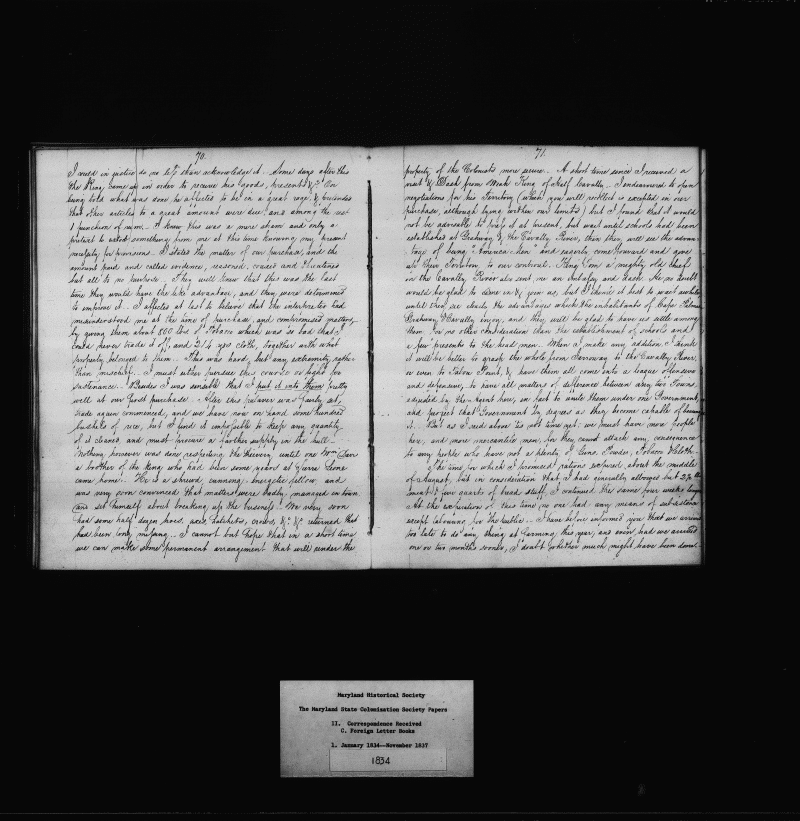 70.
I need in justice do no less than acknowledge it. Some days after this
the King came up in order to receive his goods, presents &c. On
being told what was done he affected to be in a great rage, & pretended
that other articles to a great amount were due, and among the rest
1 puncheon of rum. I knew this was a mere sham and only a
pretext to extort something from me at this time knowing my present
necessity for provisions. I stated the matter of our purchase, and the
amount paid and called evidence, reasoned, coaxed and threatened
but all to no purpose. They well knew that this was the last
time they would have the like advantage, and they were determined
to improve it. I affected at last to believe that the interpreter had
misunderstood me at the time of purchase, and compromised matters,
by giving them about 500 lbs of Tobacco which was so bad that I
could never trade it off, and 214 yds cloth, together with what
property belonged to them. This was hard, but any extremity rather
than mischief. I must either pursue this course or fight for
sustenance. Besides I was sensible that I put it into them pretty
well at our first purchase. After this palaver was fairly set,
trade again commenced, and we have now on hand some hundred
bushels of rice, but I find it impossible to keep any quantity
of it cleaned, and must procure a farther supply in the hull.
Nothing however was done respecting the thieving until one Wm.
a brother of the King who had been some years at Sierra Leone
came home. He is a shrewd, cunning, energetic fellow and
was very soon convinced that matters were badly managed in town
and set himself about breaking up the business. We very soon
had some half dozen hoes, axes, hatchets, crows, &c. &c. returned that
had been long missing. I cannot but hope that in a short time
we can make some permanent arrangement that will render the
71.
property of the Colonists more secure. A short time since I received a
visit & Dash from Weak King of Half Cavally. I endeavored to open
negotiations for his Territory (which you will recollect is excepted in our
purchase although lying within our limits) but I found that it would
not be advisable to press it at present, but wait until schools had been
established at Grahway & the Cavally River, then they will see the advan-
tage of being "America Men" and eagerly come forward and give
up their Territory to our control. King Tom a mighty old chief
on the Cavally River also sent me an embassy and Dash. He no doubt
would be glad to come in & join us, but I think it best to wait awhile
until they see clearly the advantages which the inhabitants of Cape Palmas
Grahway & Cavally enjoy, and they will be glad to have us settle among
them for no other consideration than the establishment of schools and
a few presents to the head men. When I make any addition, I think
it will be better to grasp the whole from Garroway to the Cavally River,
or even to Tabou Point, & have them all come into a league offensive
and defensive, to have all matters of difference between any two Towns,
adjusted by the Agent here, in fact to unite them under one Government,
and perfect that Government by degrees as they become capable of
it. But as I said above 'tis not time yet: we must have more people
here, and more mercantile men, for they cannot attach any consequence
to any people who have not a plenty of Guns, Powder, Tobacco & Cloth.
The time for which I promised rations expired, about the middle
of August, but in consideration that I had generally allowed but 2½ lbs
meat & five quarts of bread stuff, I continued the same four weeks longer
At the expiration of this time no one had any means of subsistence
except labouring for the public. I have before informed you that we arrived
too late to do any thing at farming this year, and even had we arrived
one or two months sooner, I doubt whether much might have been done
Maryland Historical Society
The Maryland State Colonization Society Papers
II. Correspondence Received
C. Foreign Letter Books
1. January 1834--November 1837
1834